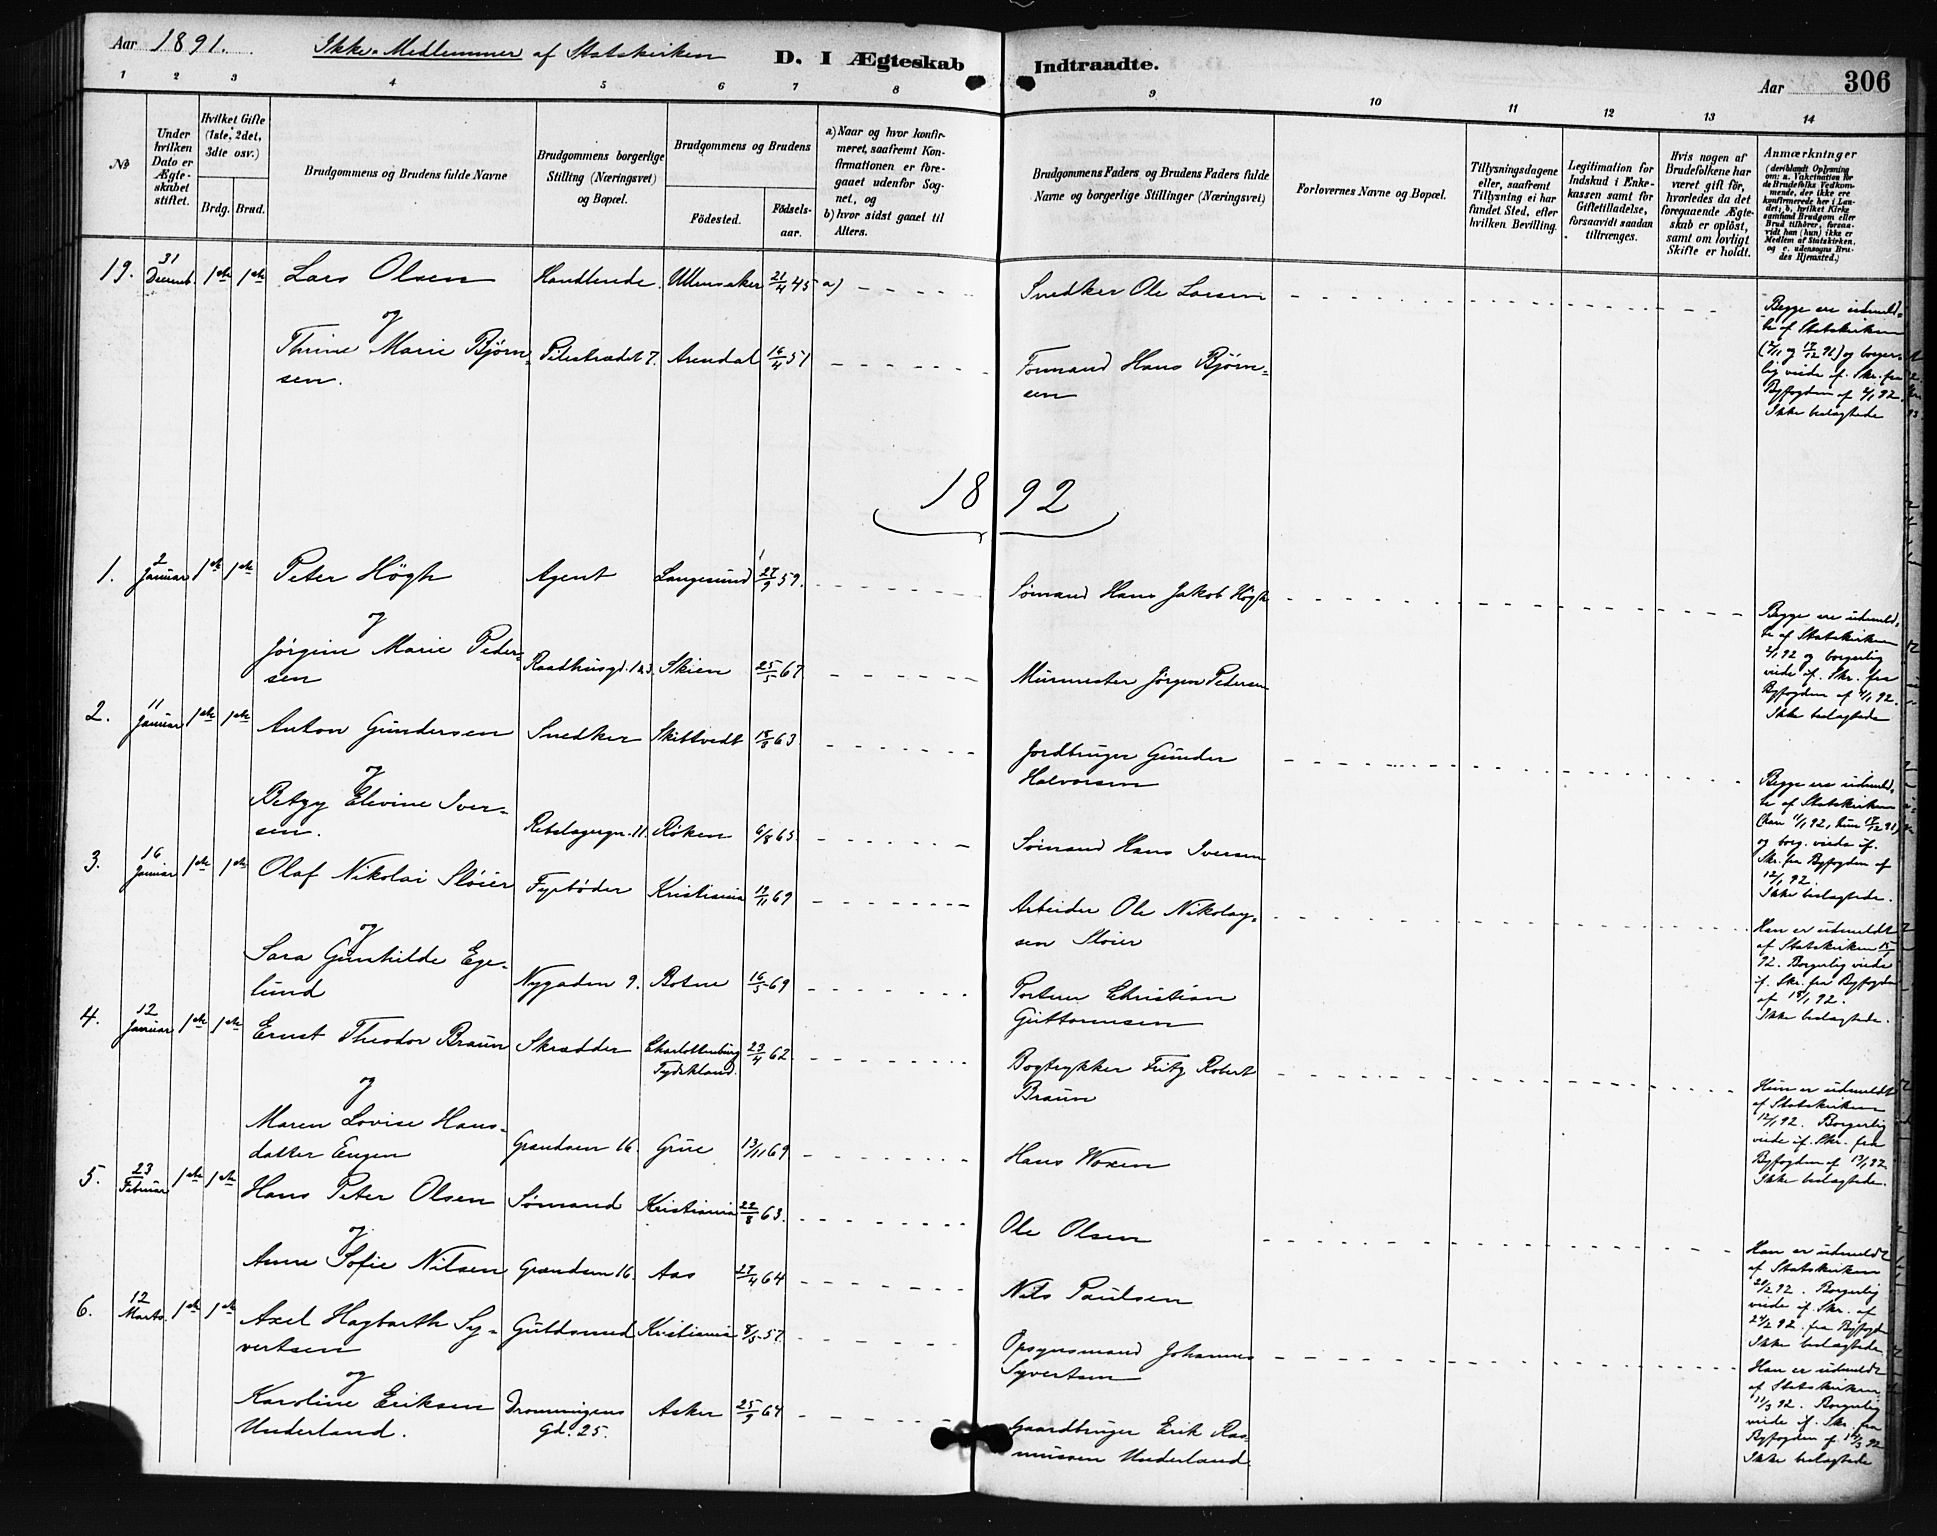 Aar 1891. Ikke-Medlemmer af Statskirken D. I Ægteskab Indtraadte. Aar 306
1 2 3 4 5 6 7 8 9 10 11 12 13 14
No
Under hvilken Dato er Ægteskabet stiftet.
Hvilket Gifte (1ste, 2det, 3die osv.)
Brdg. Brud.
Brudgommens og Brudens fulde Navne
Brudgommens borgerlige Stilling (Næringsvei) og Bopæl.
Brudgommens og Brudens
Födested. Födsels-aar.
a) Naar og hvor konfirmeret, saafremt Konfirmationen er foregaaet udenfor Sognet, og
b) hvor sidst gaaet til Alters.
Brudgommens Faders og Brudens Faders fulde Navne og borgerlige Stillinger (Næringsvei)
Forlovernes Navne og Bopæl.
Tillysningsdagene eller, saafremt Tillysning ei har fundet Sted, efter hvilken Bevilling.
Legitimation for Indskud i Enkekassen samt for Giftetilladelse, forsaavidt saadan tiltrænges.
Hvis nogen af Brudefolkene har været gift för, hvorledes da det foregaaende Ægteskab er oplöst, samt om lovligt Skifte er holdt.
Anmærkninger (deriblandt Oplysning om: a. Vakcination for de Brudefolks Vedkommende, der ikke ere konfirmerede her i Landet; b. hvilket Kirkesamfund Brudgom eller Brud tilhörer, forsaavidt han (hun) ikke er Medlem af Statskirken, og c. udensogns Brudes Hjemsted.)
19. 31 Decemb. 1ste 1ste Lars Olsen Handlende Ullensaker 21/4 45 a) Snedker Ole Larsen
og
Thrine Marie Björnsen. Pilestrædet 7. Arendal 16/4 51 Formand Hans Björnsen
Begge ere udmeldte af Statskirken (2/11 og 17/12 91) og borgerlig viede if. Skr. fra Byfogden af 2/1 92. Ikke beslægtede
1892
1. 2 Januar 1ste 1ste Peter Högh Agent Langesund 27/9 59. Sömand Hans Jakob Högh
og
Jörgine Marie Pedersen Raadhusgd. 123. Skien 25/5 67 Murmester Jörgen Pedersen
Begge ere udmeldte af Statskirken 2/1 92 og borgerlig viede if. Skr. fra Byfogden af 4/1 92. Ikke beslægtede
2. 11 Januar 1ste 1ste Anton Gundersen Snedker Skibtvedt 18/9 63 Jordbruger Gunder Halvorsen
og
Betzy Elevine Iversen. Rebslagergn. 11. Röken 6/8 65 Sömand Hans Iversen
Begge ere udmeldte af Statskirken (han 11/1 92, hun 17/12 91) og borg. viede if. Skr. fra Byfogden af 12/1 92. Ikke beslægtede.
3. 16 Januar 1ste 1ste Olaf Nikolai Slöier Fyrböder Kristiania 19/11 69 Arbeider Ole Nikolaysen Slöier
og
Sara Gunhilde Egelund Nygaden 9. Botne 16/5 69 Portner Christian Guttormsen
Han er udmeldt af Statskirken 15/1 92. Borgerlig viede if. Skr. fra Byfogden af 18/1 92. Ikke beslægtede.
4. 12 Januar 1ste 1ste Ernst Theodor Braun Skrædder Charlottenburg Tydskland. 23/4 62 Bogtrykker Fritz Robert Braun
og
Maren Lovise Hansdatter Engen Grændsen 16. Grue 13/11 69 Hans Woxen
Hun er udmeldt af Statskirken 12/1 92. Borgerlig viede if. Skr. fra Byfogden af 13/1 92 Ikke beslægtede.
5. 23 Februar 1ste 1ste Hans Peter Olsen Sömand Kristiania 22/8 63. Ole Olsen
og
Anne Sofie Nilsen Grændsen 16. Aas 27/4 64 Nils Paulsen
Han er udmeldt af Statskirken 20/2 92. Borgerlig viede if. Skr. af 24/2 92. fra Byfogden Ikke beslægtede
6. 12 Marts. 1ste 1ste Axel Hagbarth Syvertsen Guldsmed Kristiania 8/5 57. Opsynsmand Johannes Syvertsen
og
Karoline Eriksen Underland. Dronningens Gd. 25. Asker 25/9 64 Gaardbruger Erik Rasmussen Underland
Han er udmeldt af Statskirken 11/3 92. Borgerlig viede if. Skr. fra Byfogden af 14/3 92 Ikke beslægtede